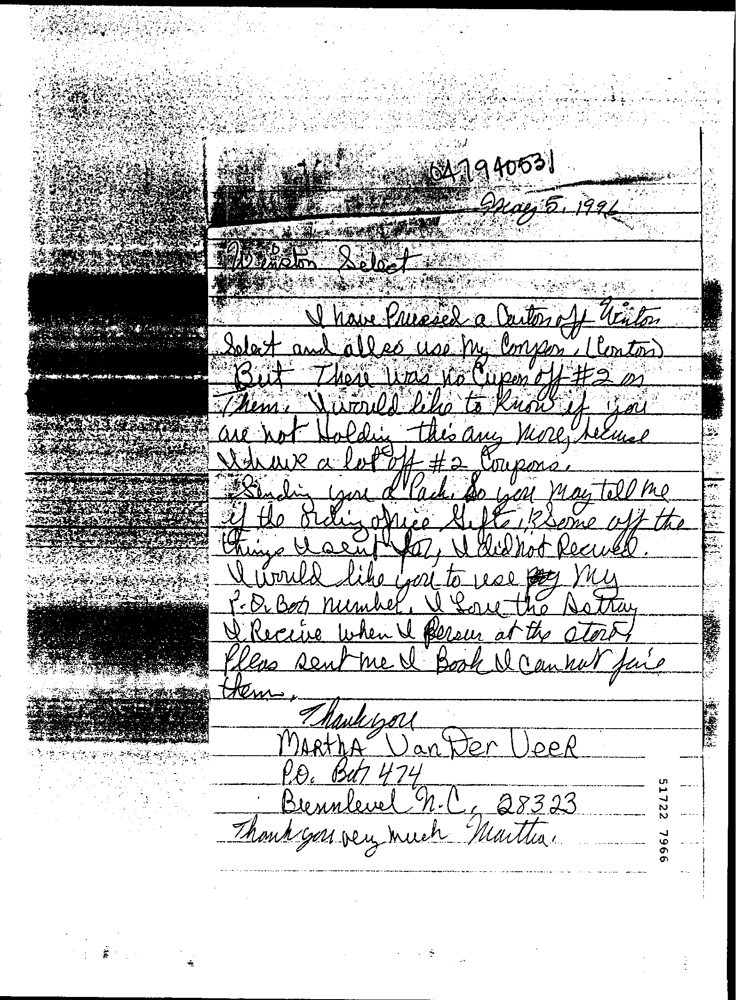 047940531
May 5, 1996
Winston Select
I have a Carton off
Select and allso use my (Conton)
But There was no Cupen off #2 on
Them. I would like to know if you
are not Holding this any more, becuse
I have a lot off #2 Coupons.
Sending you a Pack. So you may tell me
if the office Gifts, Some off the
things I sent for, I did not Recived.
I would like you to use my
P.O. Box number. I Love the Astray
I Receive when I at the store,
Pleas sent me I Book I can not
them.
Thank you
MARTHA Van Der Veer
P.O. Box 474
Bunnlevel N.C. 28323
Thank you very much Martha.
51722 7966